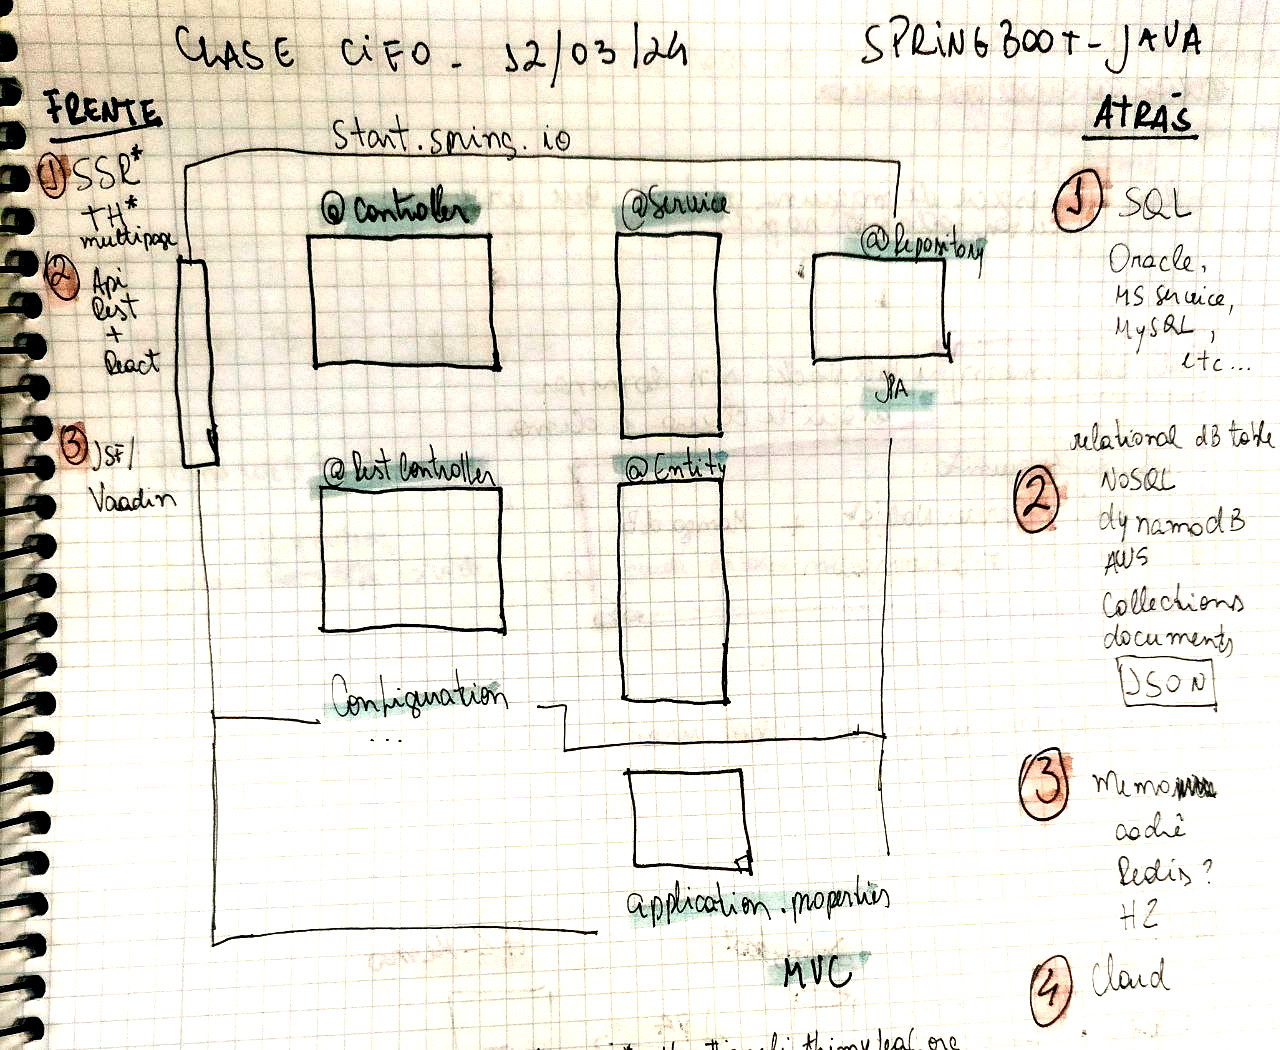 CLASE CiFO - 12/03/24
SPRiNGBOOT - JAVA
FRENTE
1 SSR*
TH*
multipage
2 Api
Rest
+
React
3 JSF/
Vaadin
Start.spring.io
@Controller
@Service
@Repository
JPA
@RestController
@Entity
Configuration
...
application.properties
MVC
ATRÁS
1 SQL
Oracle,
MS Service,
MySQL,
etc...
relational dB table
2 NoSQL
dynamodB
AWS
Collections
documents
JSON
3 Memo
cachê
Redis?
H2
4 Cloud